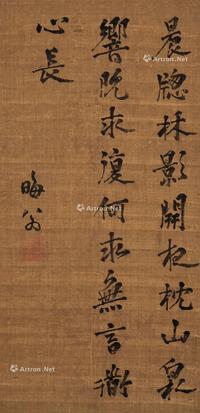 晨牕林影開夜枕山泉
響既求復何求無言衜
心長
晦翁
Artron.Net
Artron.Net
Artron.Net